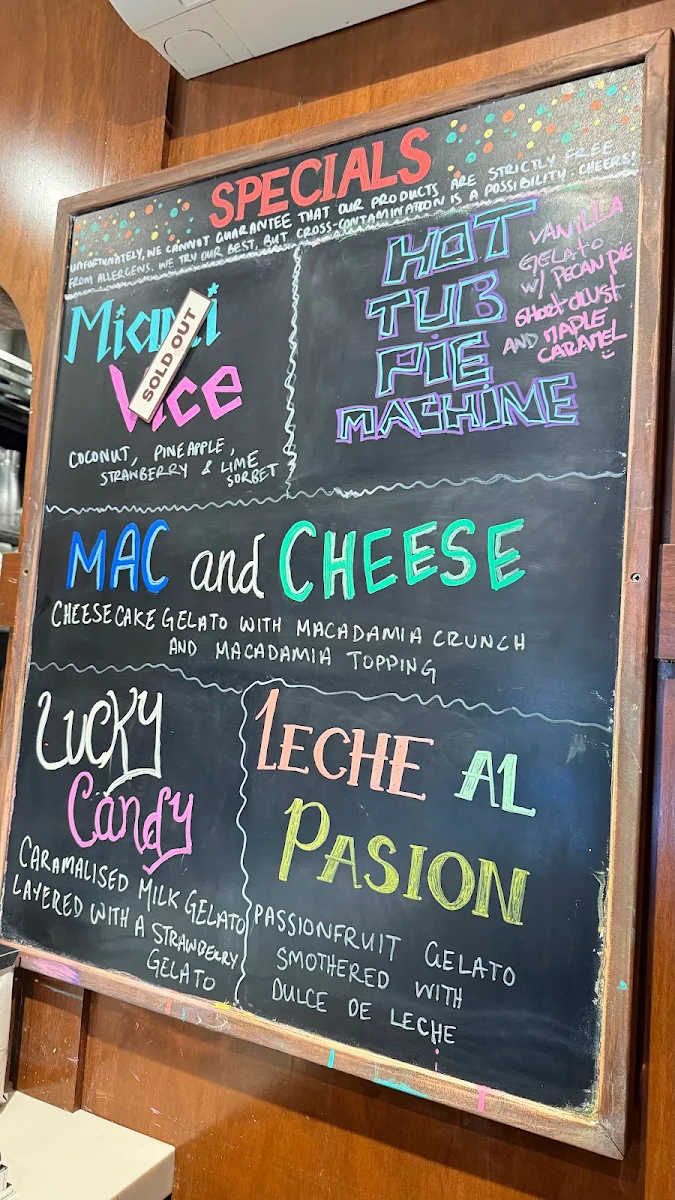 SPECIALS
UNFORTUNATELY, WE CANNOT GUARANTEE THAT OUR PRODUCTS ARE STRICTLY FREE
FROM ALLERGENS. WE TRY OUR BEST, BUT CROSS-CONTAMINATION IS A POSSIBILITY. CHEERS!
Miami
Vice
SOLD OUT
COCONUT, PINEAPPLE,
STRAWBERRY & LIME
SORBET
HOT
TUB
PIE
MACHINE
VANILLA
GELATO
W/ PECAN PIE
SHORT CRUST
AND MAPLE
CARAMEL
MAC and CHEESE
CHEESECAKE GELATO WITH MACADAMIA CRUNCH
AND MACADAMIA TOPPING
Lucky
Candy
CARAMALISED MILK GELATO
LAYERED WITH A STRAWBERRY
GELATO
LECHE AL
PASION
PASSIONFRUIT GELATO
SMOTHERED WITH
DULCE DE LECHE